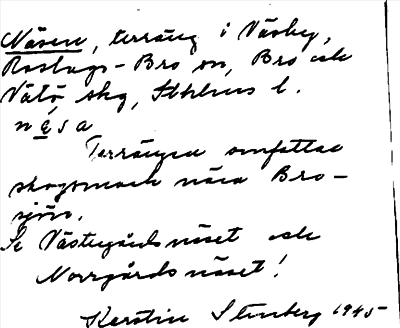 Näsen, terräng i Väsby,
Roslags-Bro sn, Bro och
Vätö skg, Sthlms l.
näsa
Terrängen omfattar
skogsmark nära Bro-
sjön.
Se Västergårdsnäset och
Norrgårdsnäset!
Kerstin Stenberg 1945